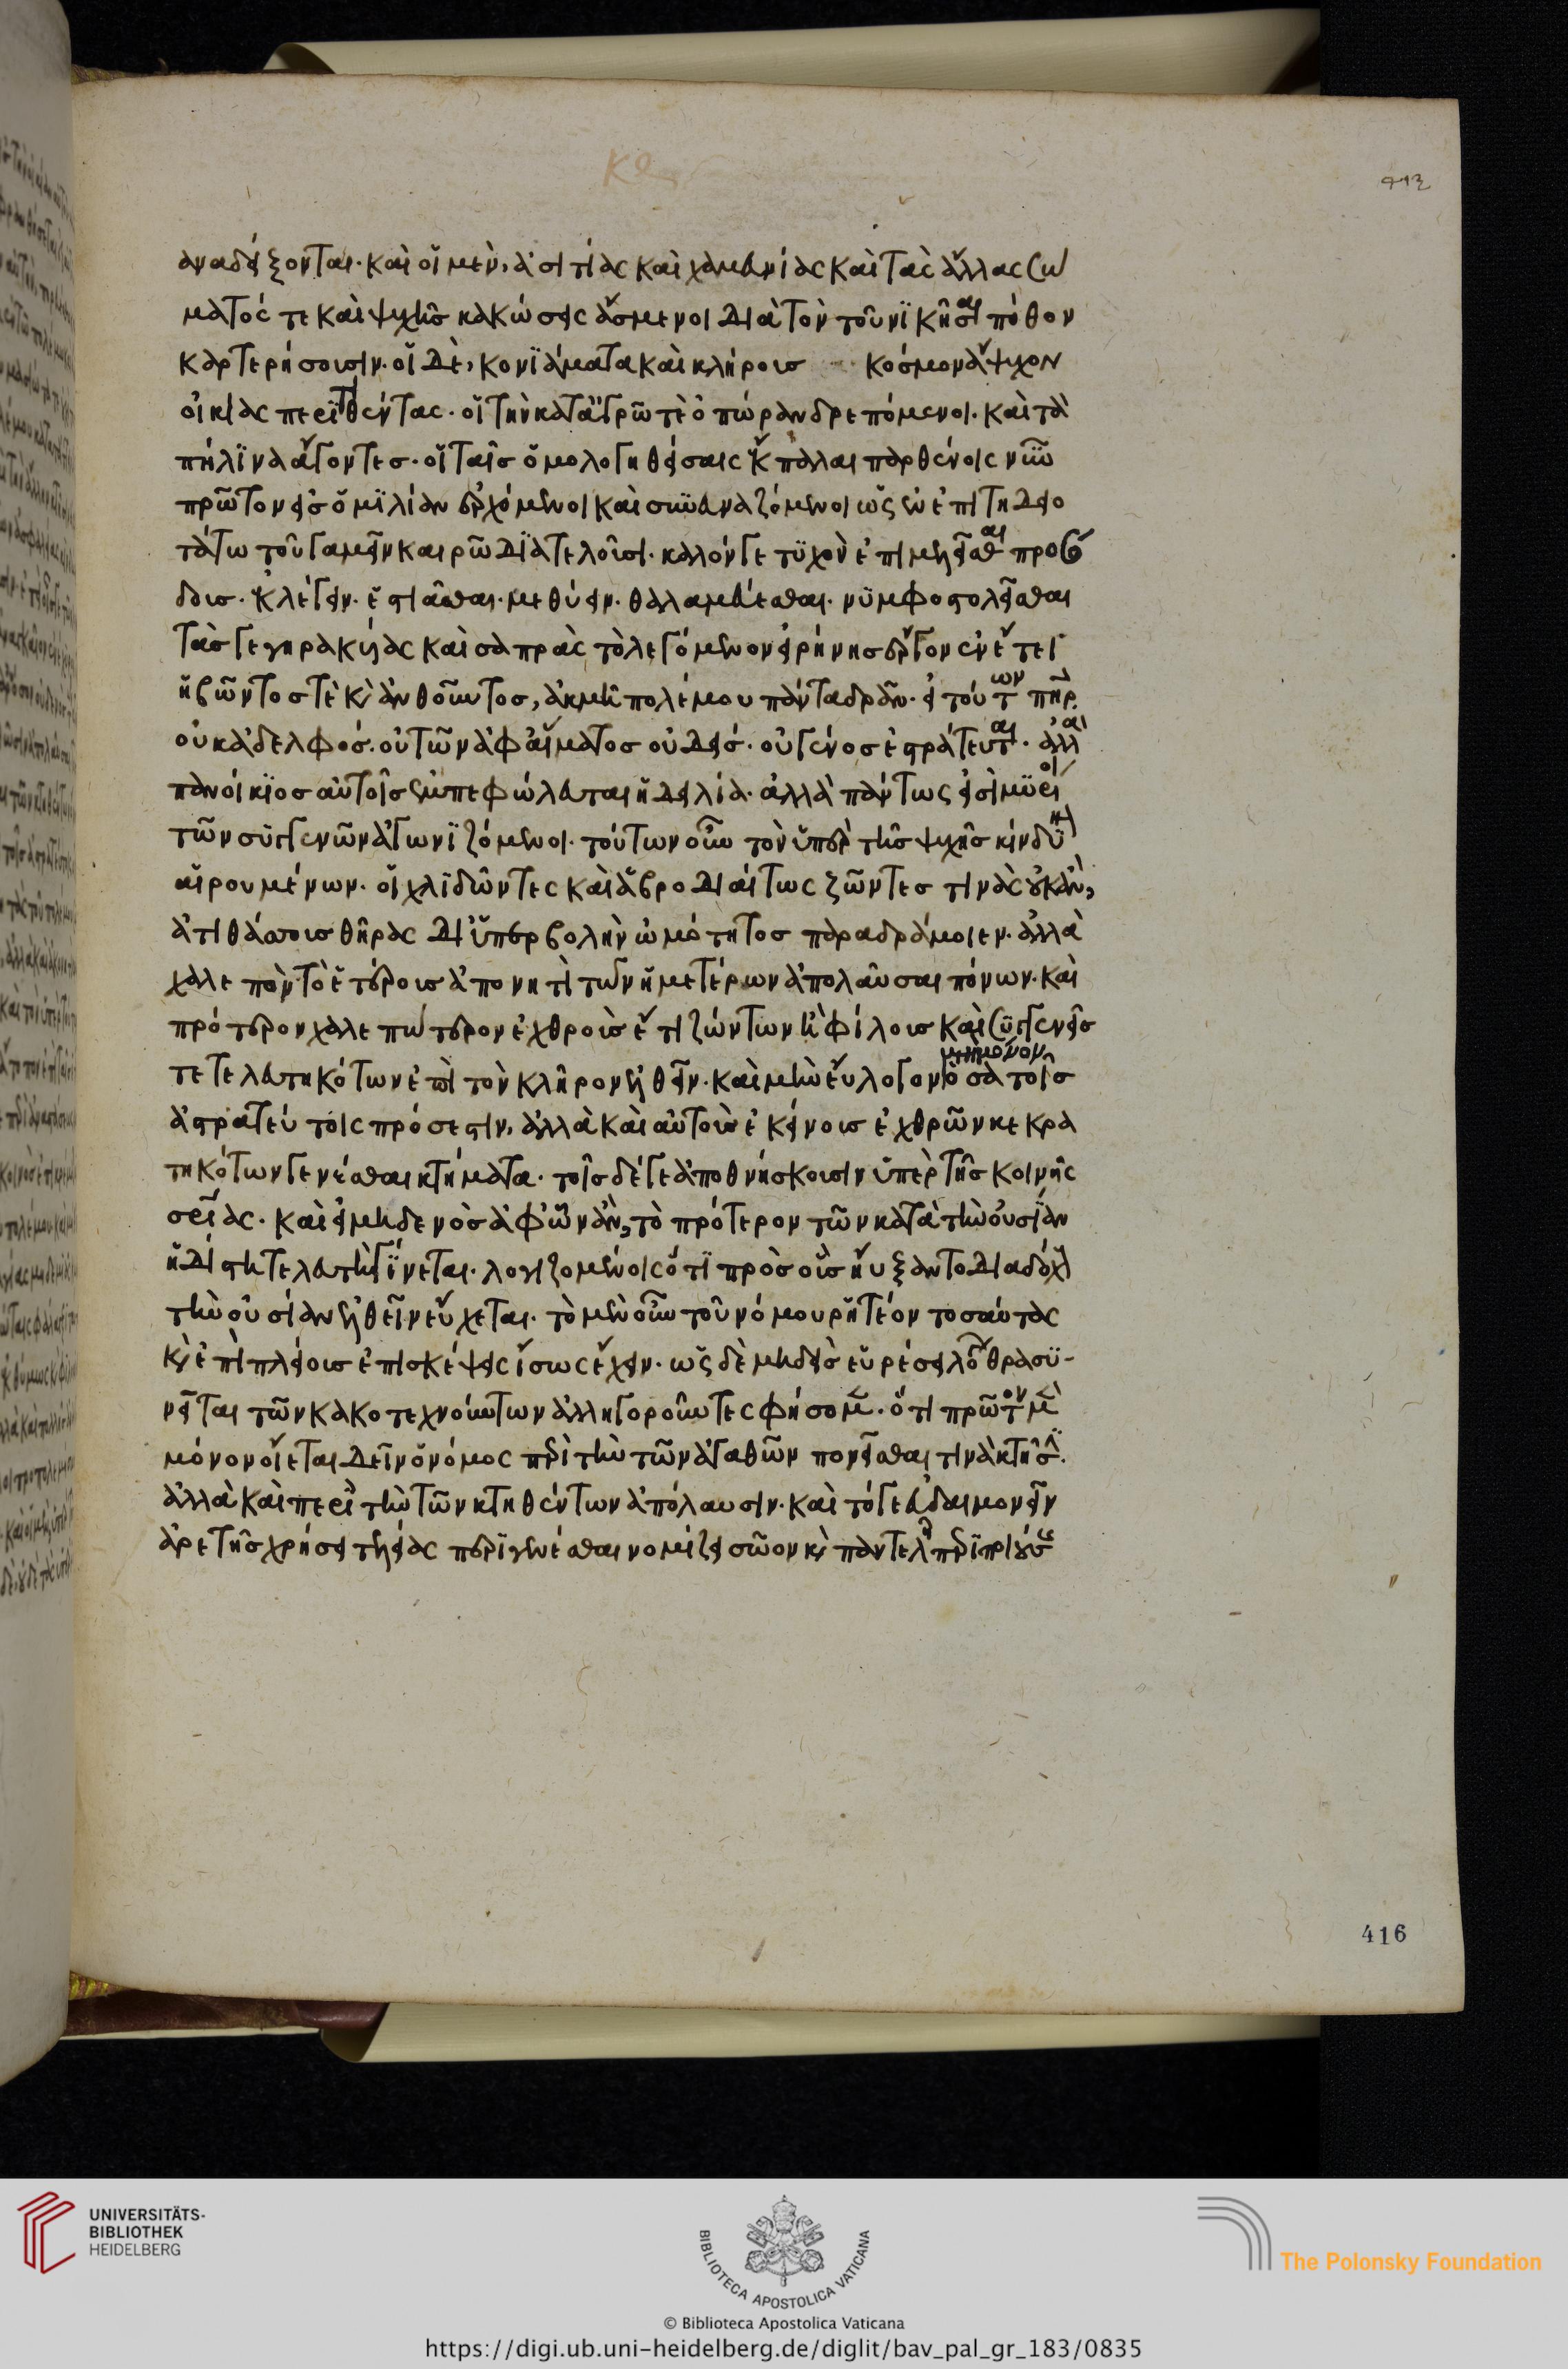 Κε
412
ἀναδείξονται· καὶ οἱ μὲν, ἀσιτίας καὶ χαμευνίας καὶ τὰς ἄλλας σώ
ματός τε καὶ ψυχῆς κακώσεις ἄσμενοι διὰ τὸν τοῦ νικῆσαι πόθον
καρτερήσουσιν· οἱ δὲ, κονϊάματα καὶ κλήρους κόσμον ἄψυχον
οἰκίας περϊτιθέντας· οἳ τὴν κατ' ἀγρῶ τὲ ὀπώραν δρεπόμενοι· καὶ τὰ
πήλϊνα ἄγοντες· οἳ ταῖς ὁμολογηθείσαις ἔκπαλαι παρθένοις νῦν
πρῶτον εἰς ὁμϊλίαν ἐρχόμενοι καὶ συνευναζόμενοι ὡς ἐν ἐπιτηδειο
τάτω τοῦ γαμεῖν καιρῶ διατελοῦσι· καλόν γε τύχον ἐπιμελεῖσθαι προσό
δους· ἐκλέγειν· ἑστιᾶσθαι· μεθύειν· θαλαμεύεσθαι· νυμφοστολεῖσθαι
τάς γε γηρακυίας καὶ σαπρὰς τὸ λεγόμενον εἰρήνης ἔργον ἐν ἔτει
ἡβῶντος τὲ καὶ ἀνθοῦντος, ἀκμῆ πολέμου πάντα δρᾶν· εἰ τούτων πηρ
οὐκ ἀδελφός· οὐ τῶν ἀφ' αἵματος οὐδείς· οὐ γένος ἐστράτευται· ἀλλὰ
πανοίκϊος αὐτοῖς ἐμπεφώλευται ἡ δειλία· ἀλλὰ πάντως εἰσὶ μϋρίοι
τῶν συγγενῶν ἀγωνϊζόμενοι· τούτων οὖν τὸν ὑπὲρ τῆς ψυχῆς κίνδυνον
αἱρουμένων· οἱ χλϊδῶντες καὶ ἁβροδιαίτως ζῶντες τινὰς οὐκ ἂν,
ἀτιθάσους θῆρας δι' ὑπερβολὴν ὠμότητος παραδράμοιεν· ἀλλὰ
χαλεπὸν τὸ ἑτέρους ἀπονητὶ τῶν ἡμετέρων ἀπολαῦσαι πόνων· καὶ
πρότερον χαλεπώτερον ἐχθροὺς ἔτι ζώντων ἢ φίλους καὶ συγγενεῖς
τετελευτηκότων ἐπὶ τὸν κλῆρον ἐλθεῖν· καὶ μὴν εὔλογον οὐ μόνον ὅσα τοῖς
ἀστρατεύτοις πρόσεστιν, ἀλλὰ καὶ αὐτοὺς ἐκείνους ἐχθρῶν κεκρα
τηκότων γενέσθαι κτήματα· τοῖς δέ γε ἀποθνήσκουσιν ὑπὲρ τῆς κοινῆς
σρίας· καὶ εἰ μηδενὸς ἀφ' ὧν ἂν, τὸ πρότερον τῶν κατὰ τὴν οὐσίαν
ἡδίστη τελευτὴ γίνεται· λογιζομένοις ὅτϊ πρὸς οὓς ηὔξαντο διαδόχους
τὴν οὐσίαν ἐλθεῖν εὔχεται· τὸ μὲν οὖν τοῦ νόμου ῥητέον τοσαύτας
καὶ ἐπὶ πλείους ἐπισκέψεις ἴσως ἔχειν· ὡς δὲ μηδεὶς εὑρέσει λόγου θρασύ-
νεῖται τῶν κακοτεχνούντων ἀλληγοροῦντες φήσομεν· ὅτι πρῶτον μὲν
μόνον οἴεται δεῖν ὁ νόμος περὶ τὴν τῶν ἀγαθῶν πονεῖσθαι τινὰ κτῆσιν·
ἀλλὰ καὶ περὶ τὴν τῶν κτηθέντων ἀπόλαυσιν· καὶ τό γε εὐδαιμονεῖν
ἀρετῆς χρήσει τελείας περϊγενέσθαι νομίζει σῶον καὶ παντελῆ περϊποιούσης
416
UNIVERSITÄTS-
BIBLIOTHEK
HEIDELBERG
BIBLIOTECA APOSTOLICA VATICANA
The Polonsky Foundation
© Biblioteca Apostolica Vaticana
https://digi.ub.uni-heidelberg.de/diglit/bav_pal_gr_183/0835